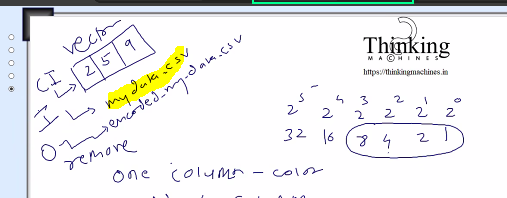 vector
CI → 2 5 9
I → mydata.csv
O → encoded-my-data.csv
remove
Thinking
MACHINES
https://thinkingmachines.in
2^5 2^4 2^3 2^2 2^1 2^0
32 16 8 4 2 1
one column - color